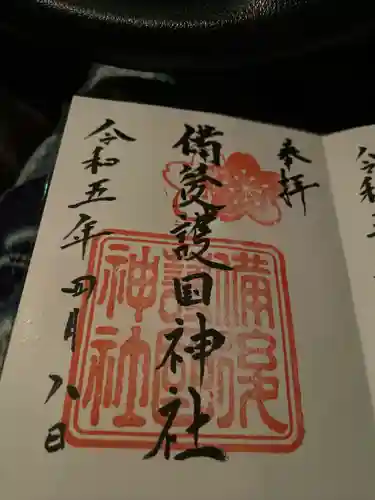 奉拝
備後護国神社
令和五年四月八日
備後
護国
神社
令和